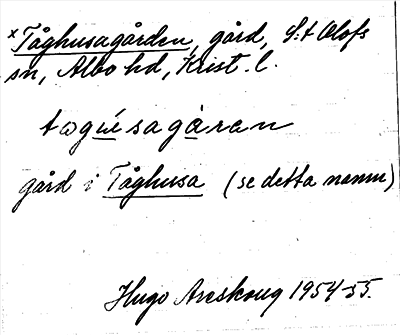 ×Tåghusagården, gård, S:t Olofs
sn, Albo hd, Krist. l.
tωgúsagåran
gård i Tåghusa (se detta namn)
Hugo Areskoug 1954-55.